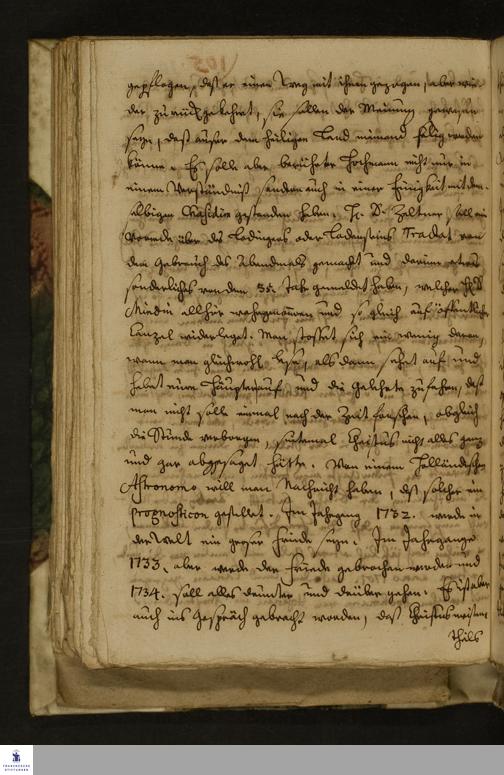 gepflogen, daß er einen Weg mit ihnen gezogen, aber wie-
der zurück gekehrt, sie sollen der Meinung gewesen
seyn, daß außer dem heiligen Land niemand selig werden
könne. Es solle aber berührter Hochmann nicht nur in
einem Verständniß sondern auch in einer Einigkeit mit den-
selbigen gestanden haben. H. D. Zeltner soll ein
Vorrede über des oder Tractat von
dem Gebrauch des Abendmals gemacht und darinn etwas
sonderliches von dem 35. Jahr gemeldet haben, welcher
allhier wahrgenommen und so gleich auf öffentlicher
Canzel widerleget. Man stosset sich ein wenig daran,
wann man gleichwohl lese, alsdann sehet auf und
hebet eure Häupter auf, und die Gelehrte zusehen, daß
man nicht solle einmal nach der Zeit forschen, obgleich
die Stunde verborgen, sintemal Christus nicht alles ganz
und gar abgesaget hätte. Von einem Holländischen
Astronomo will man Nachricht haben, daß solcher ein
prognosticon gestellet. Im Jahrgang 1732. werde in
der Welt ein groser Friede seyn. Im Jahrgange
1733. aber werde der Friede gebrochen werden und
1734. soll alles drunter und drüber gehen. Es ist aber
auch ins Gespräch gebracht worden, daß Christus meisten
theils